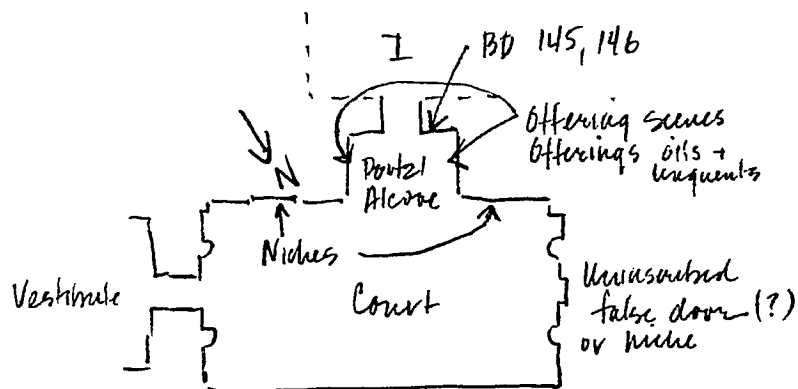 I
BD 145, 146
Offering scenes
Offerings oils +
unguents
N
Portal
Alcove
Niches
Vestibule
Court
Uninscribed
false door (?)
or niche